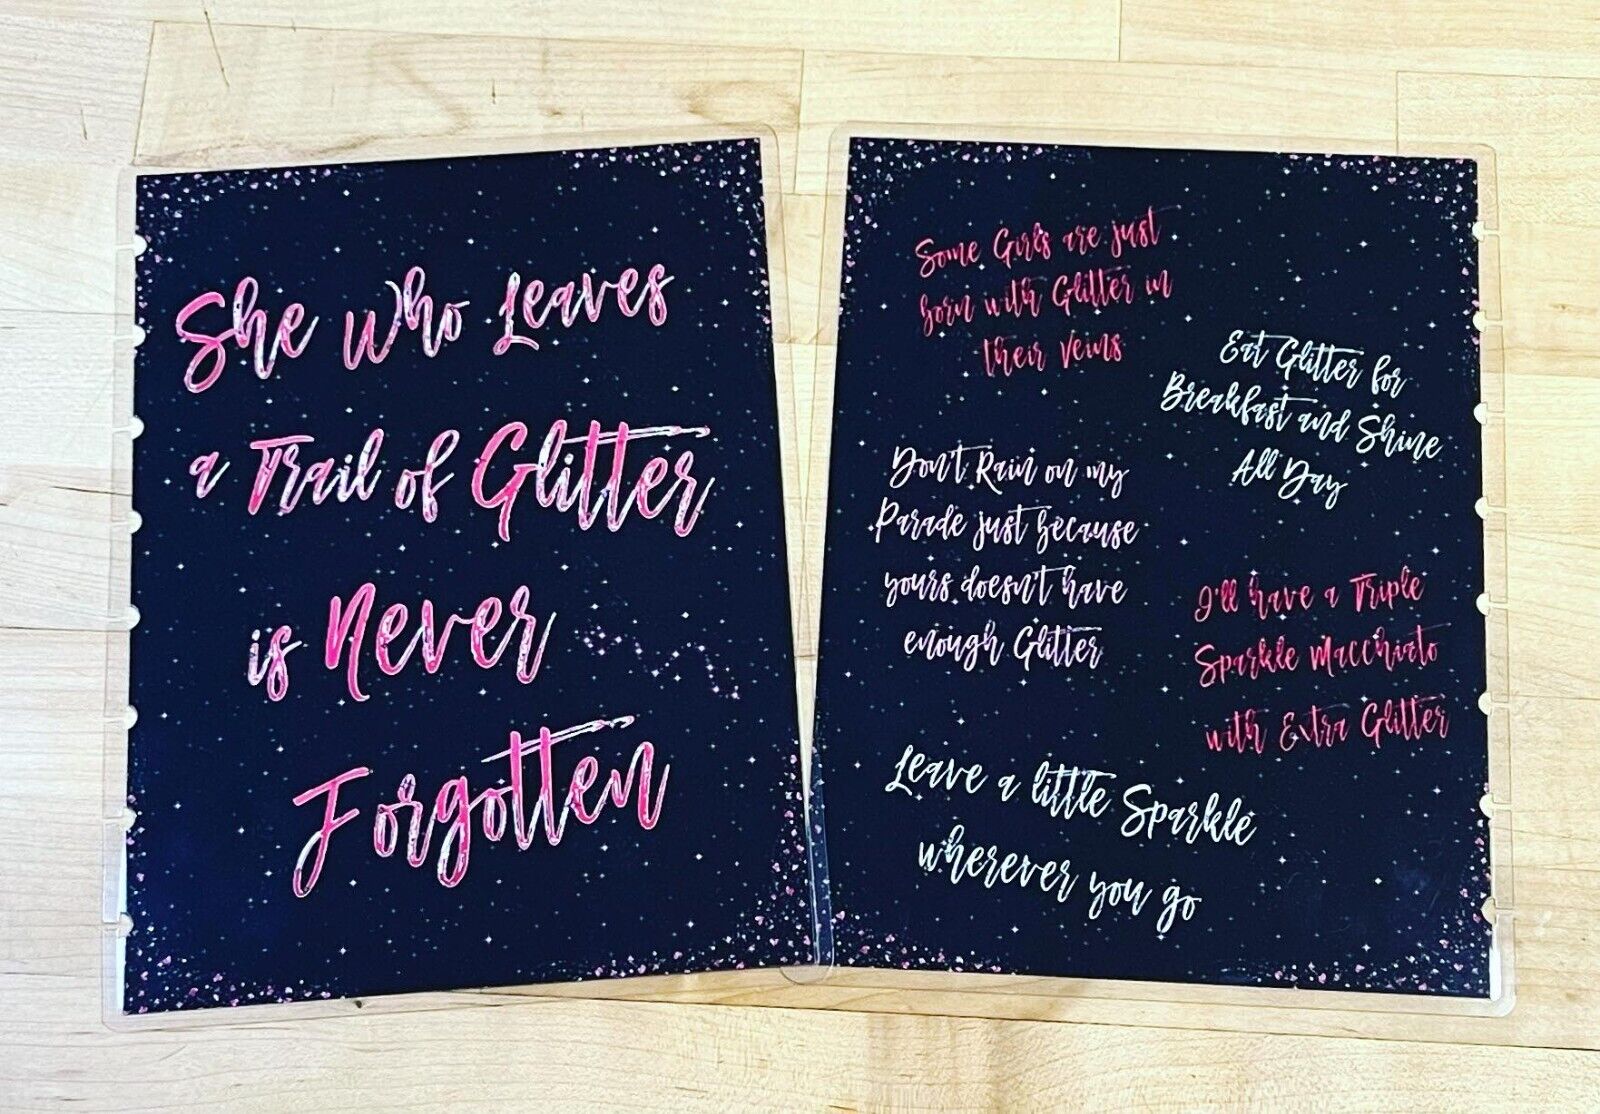 She Who Leaves
a Trail of Glitter
is Never
Forgotten
Some Girls are just
born with Glitter in
their Veins
Eat Glitter for
Breakfast and Shine
All Day
Don't Rain on my
Parade just because
yours doesn't have
enough Glitter
I'll have a Triple
Sparkle Macchiato
with Extra Glitter
Leave a little Sparkle
wherever you go